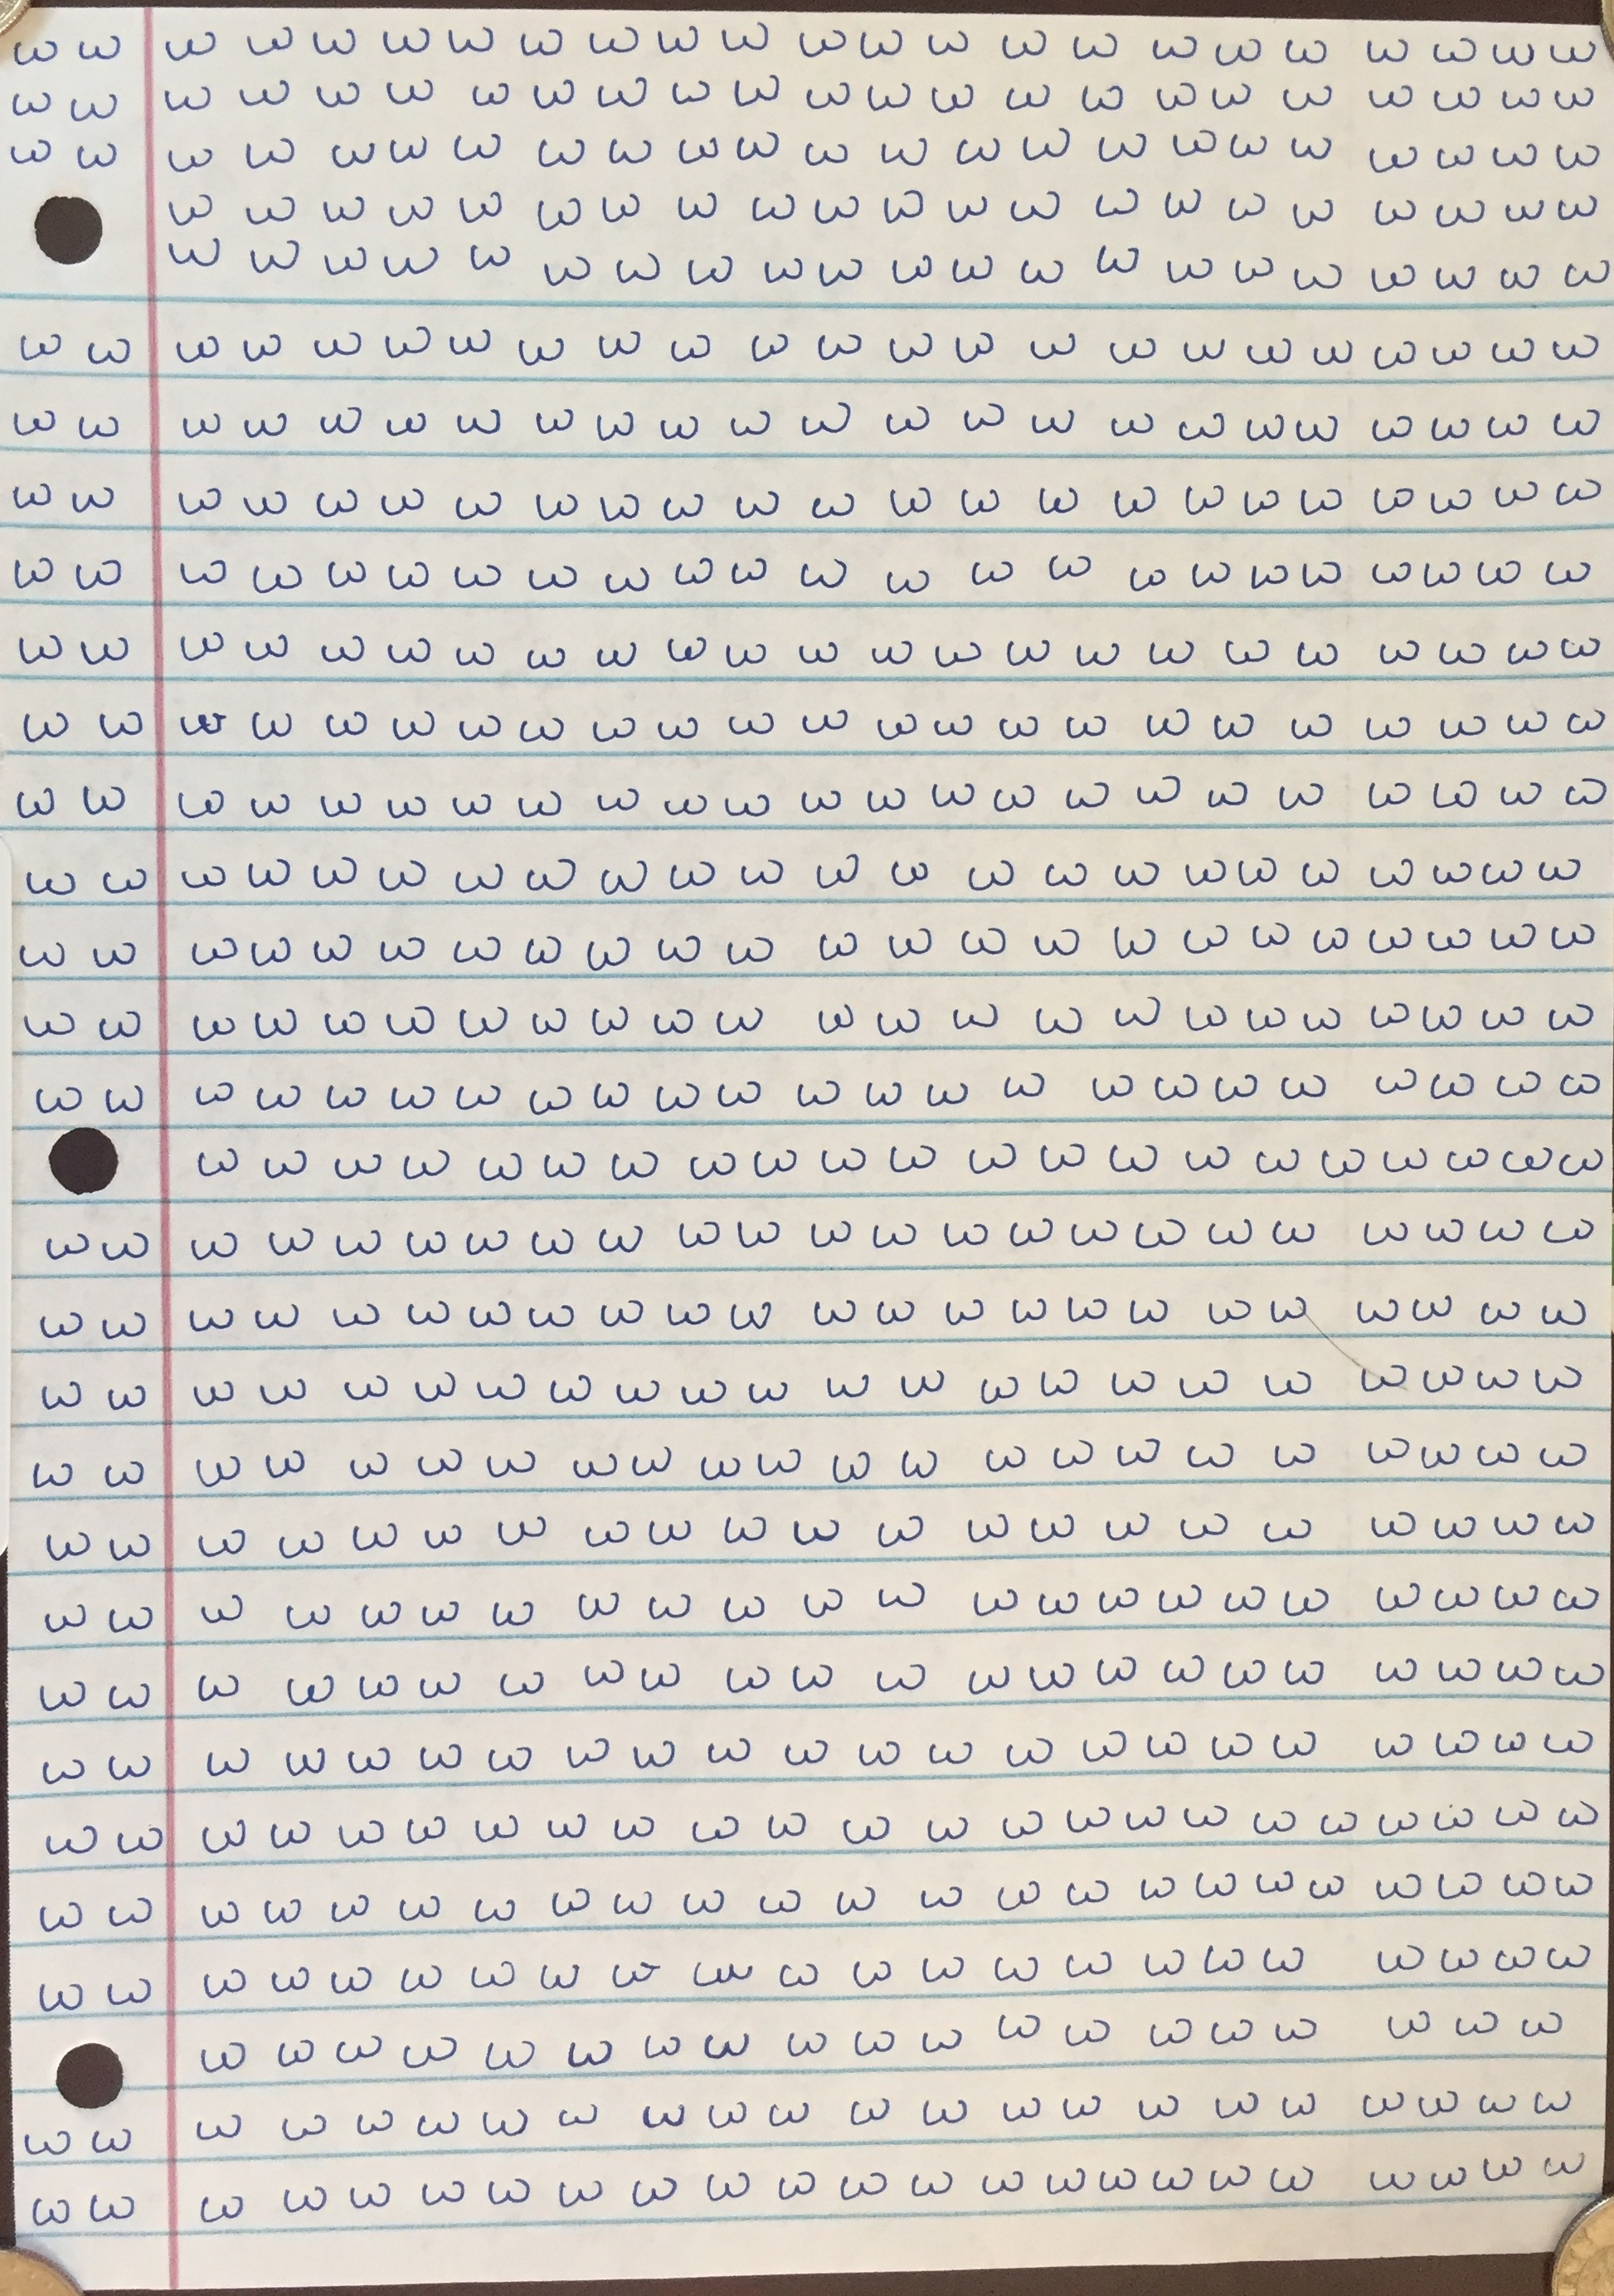 ω ω ω ω ω ω ω ω ω ω ω ω ω ω ω ω ω ω ω ω ω ω ω
ω ω ω ω ω ω ω ω ω ω ω ω ω ω ω ω ω ω ω ω ω ω ω
ω ω ω ω ω ω ω ω ω ω ω ω ω ω ω ω ω ω ω ω ω ω ω
ω ω ω ω ω ω ω ω ω ω ω ω ω ω ω ω ω ω ω ω ω
ω ω ω ω ω ω ω ω ω ω ω ω ω ω ω ω ω ω ω ω ω
ω ω ω ω ω ω ω ω ω ω ω ω ω ω ω ω ω ω ω ω ω ω ω
ω ω ω ω ω ω ω ω ω ω ω ω ω ω ω ω ω ω ω ω ω ω ω
ω ω ω ω ω ω ω ω ω ω ω ω ω ω ω ω ω ω ω ω ω ω ω
ω ω ω ω ω ω ω ω ω ω ω ω ω ω ω ω ω ω ω ω ω ω ω
ω ω ω ω ω ω ω ω ω ω ω ω ω ω ω ω ω ω ω ω ω ω ω
ω ω ω ω ω ω ω ω ω ω ω ω ω ω ω ω ω ω ω ω ω ω ω
ω ω ω ω ω ω ω ω ω ω ω ω ω ω ω ω ω ω ω ω ω ω ω
ω ω ω ω ω ω ω ω ω ω ω ω ω ω ω ω ω ω ω ω ω ω ω
ω ω ω ω ω ω ω ω ω ω ω ω ω ω ω ω ω ω ω ω ω ω ω
ω ω ω ω ω ω ω ω ω ω ω ω ω ω ω ω ω ω ω ω ω ω ω
ω ω ω ω ω ω ω ω ω ω ω ω ω ω ω ω ω ω ω ω ω ω ω
ω ω ω ω ω ω ω ω ω ω ω ω ω ω ω ω ω ω ω ω ω
ω ω ω ω ω ω ω ω ω ω ω ω ω ω ω ω ω ω ω ω ω ω ω
ω ω ω ω ω ω ω ω ω ω ω ω ω ω ω ω ω ω ω ω ω ω ω
ω ω ω ω ω ω ω ω ω ω ω ω ω ω ω ω ω ω ω ω ω ω
ω ω ω ω ω ω ω ω ω ω ω ω ω ω ω ω ω ω ω ω ω ω
ω ω ω ω ω ω ω ω ω ω ω ω ω ω ω ω ω ω ω ω ω
ω ω ω ω ω ω ω ω ω ω ω ω ω ω ω ω ω ω ω ω ω ω
ω ω ω ω ω ω ω ω ω ω ω ω ω ω ω ω ω ω ω ω ω ω
ω ω ω ω ω ω ω ω ω ω ω ω ω ω ω ω ω ω ω ω ω ω
ω ω ω ω ω ω ω ω ω ω ω ω ω ω ω ω ω ω ω ω ω ω ω
ω ω ω ω ω ω ω ω ω ω ω ω ω ω ω ω ω ω ω ω ω ω ω
ω ω ω ω ω ω ω ω ω ω ω ω ω ω ω ω ω ω ω ω ω ω
ω ω ω ω ω ω ω ω ω ω ω ω ω ω ω ω ω ω ω
ω ω ω ω ω ω ω ω ω ω ω ω ω ω ω ω ω ω ω ω ω ω
ω ω ω ω ω ω ω ω ω ω ω ω ω ω ω ω ω ω ω ω ω ω ω